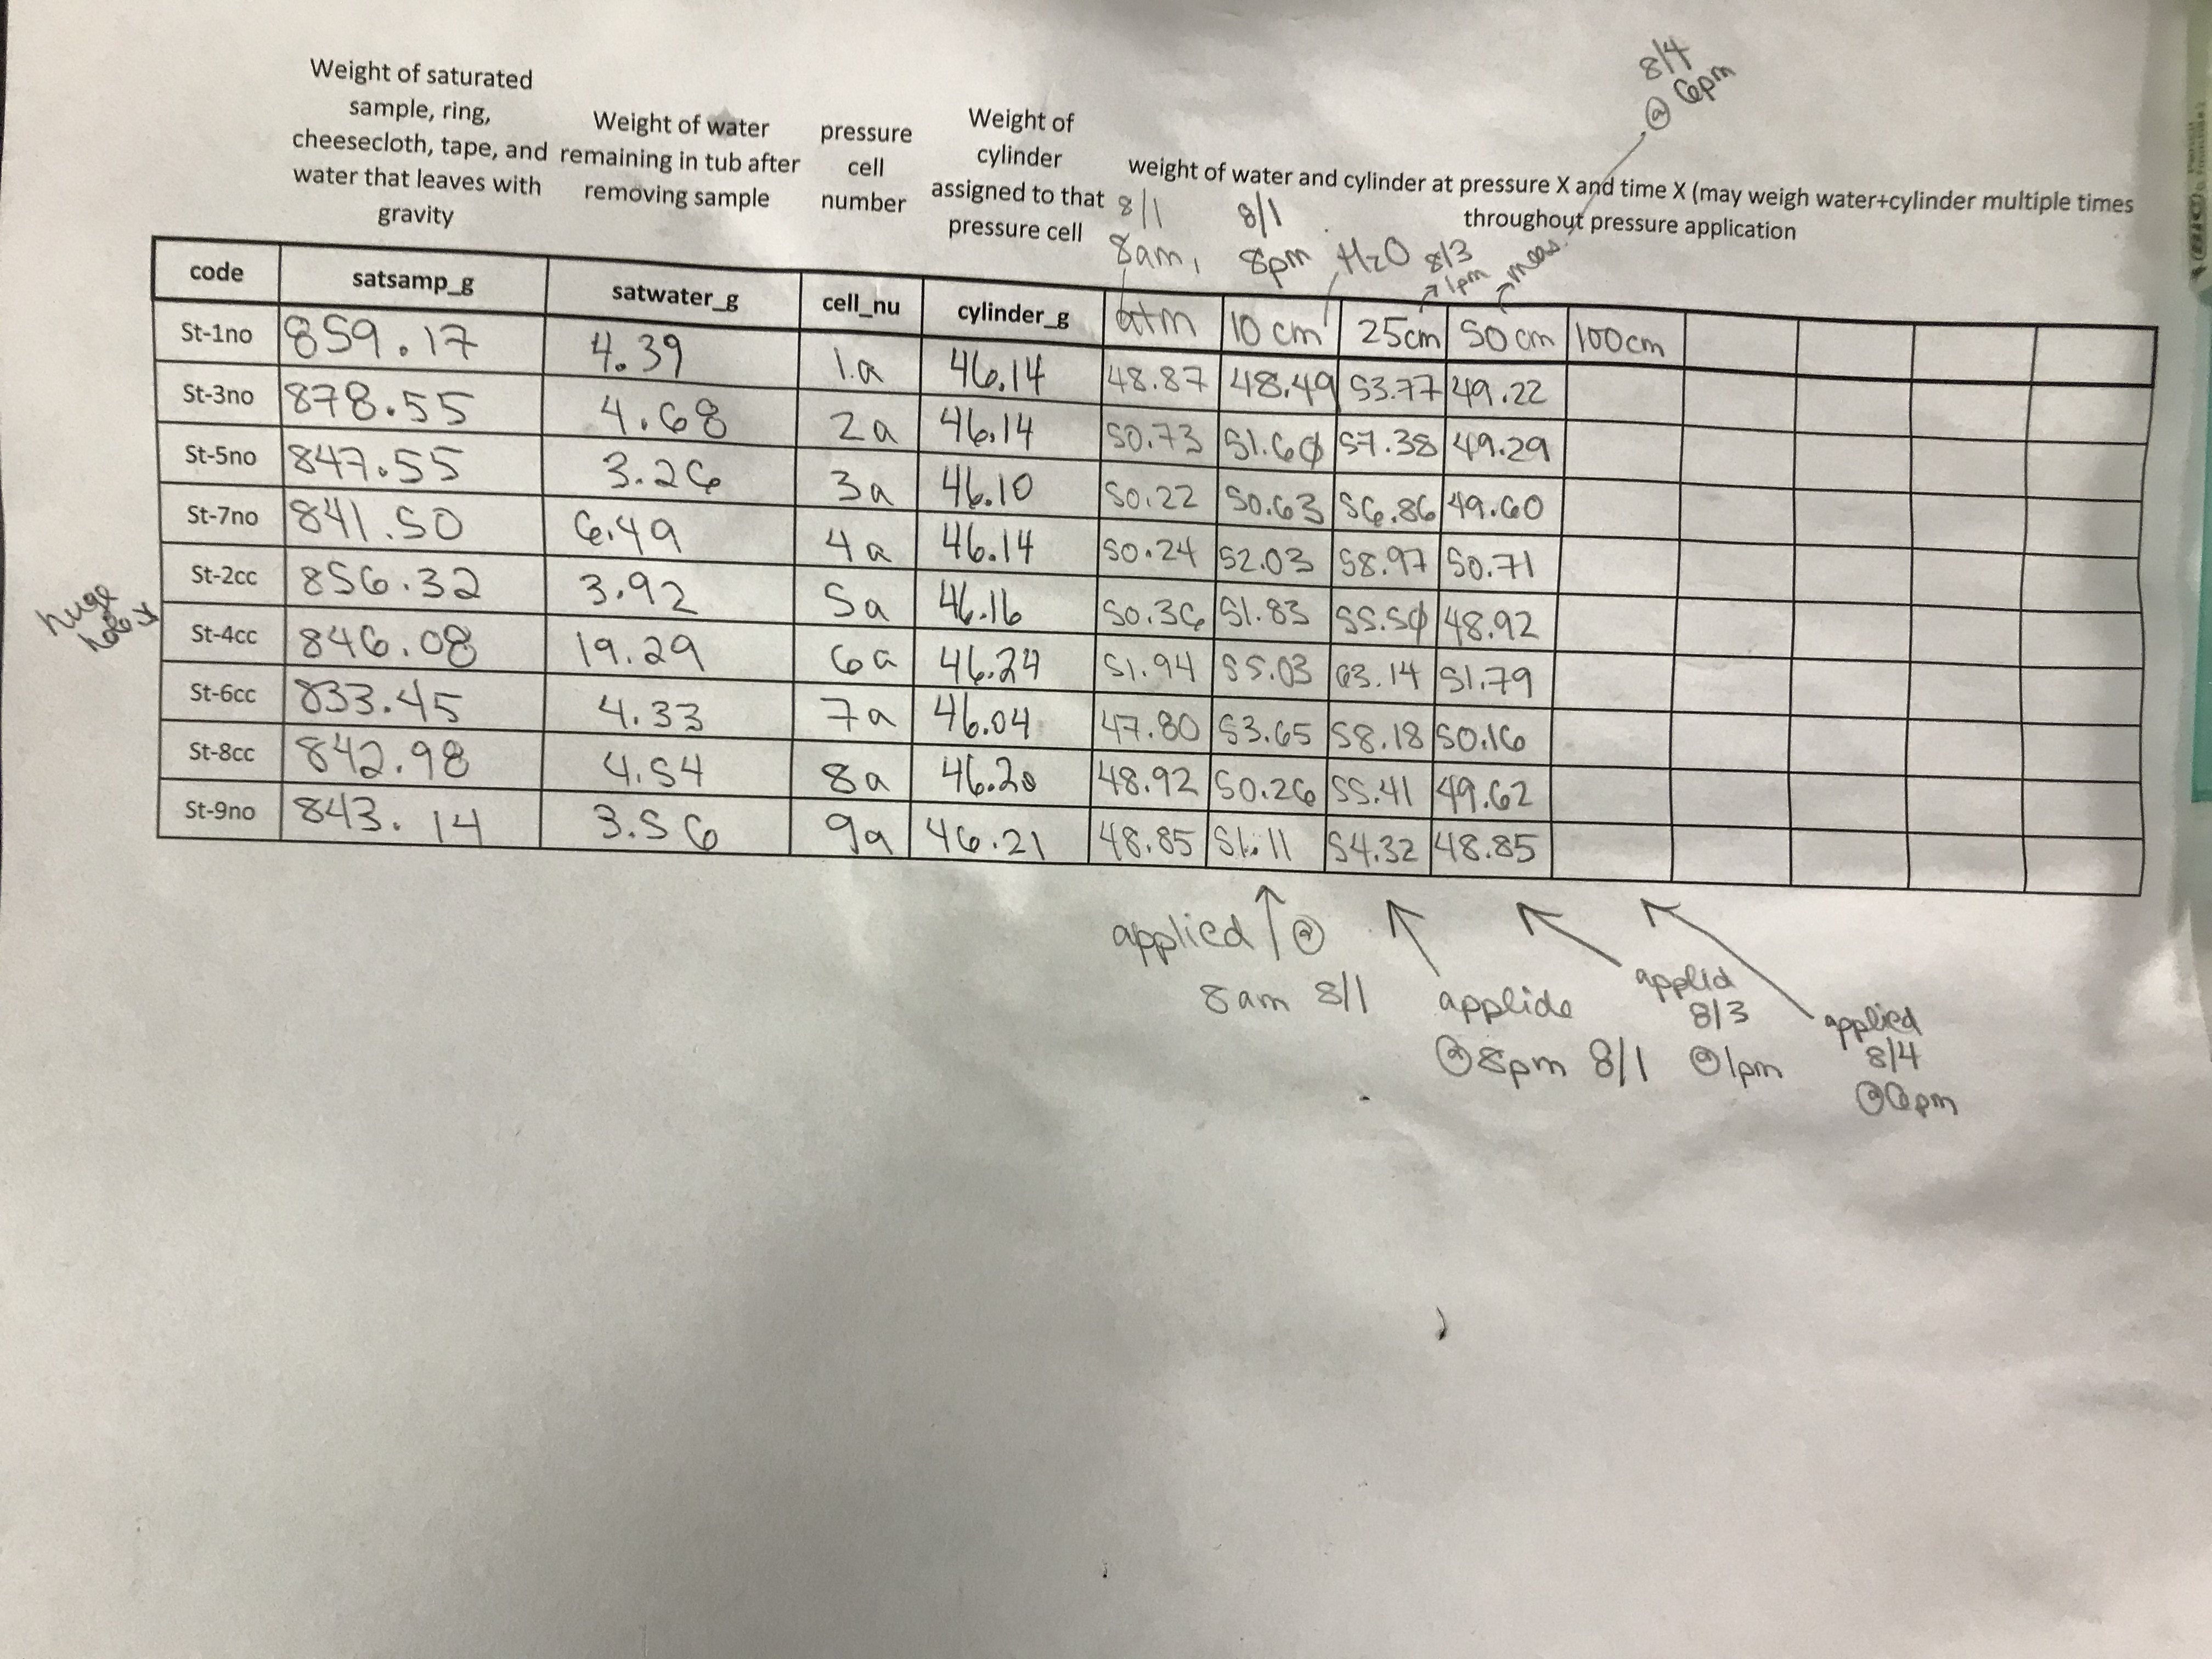 8/4
@ 6pm
Weight of saturated
sample, ring,
cheesecloth, tape, and
water that leaves with
gravity
Weight of water
remaining in tub after
removing sample
pressure
cell
number
Weight of
cylinder
assigned to that
pressure cell
weight of water and cylinder at pressure X and time X (may weigh water+cylinder multiple times
throughout pressure application
8/1
8am,
8/1
8pm
H2O
8/3
1pm
meas.
code satsamp_g satwater_g cell_nu cylinder_g atm 10 cm 25cm 50 cm 100cm
St-1no 859.17 4.39 1a 46.14 48.87 48.49 53.77 49.22
St-3no 878.55 4.68 2a 46.14 50.73 51.60 57.38 49.29
St-5no 847.55 3.26 3a 46.10 50.22 50.63 56.86 49.60
St-7no 841.50 6.49 4a 46.14 50.24 52.03 58.97 50.71
St-2cc 856.32 3.92 5a 46.16 50.36 51.83 55.50 48.92
huge
St-4cc 846.08 19.29 6a 46.24 51.94 55.03 63.14 51.79
St-6cc 833.45 4.33 7a 46.04 47.80 53.65 58.18 50.16
St-8cc 842.98 4.54 8a 46.20 48.92 50.26 55.41 49.62
St-9no 843.14 3.56 9a 46.21 48.85 51.11 54.32 48.85
applied @
8am 8/1
applide
@8pm 8/1
applid
8/3
@1pm
applied
8/4
@6pm